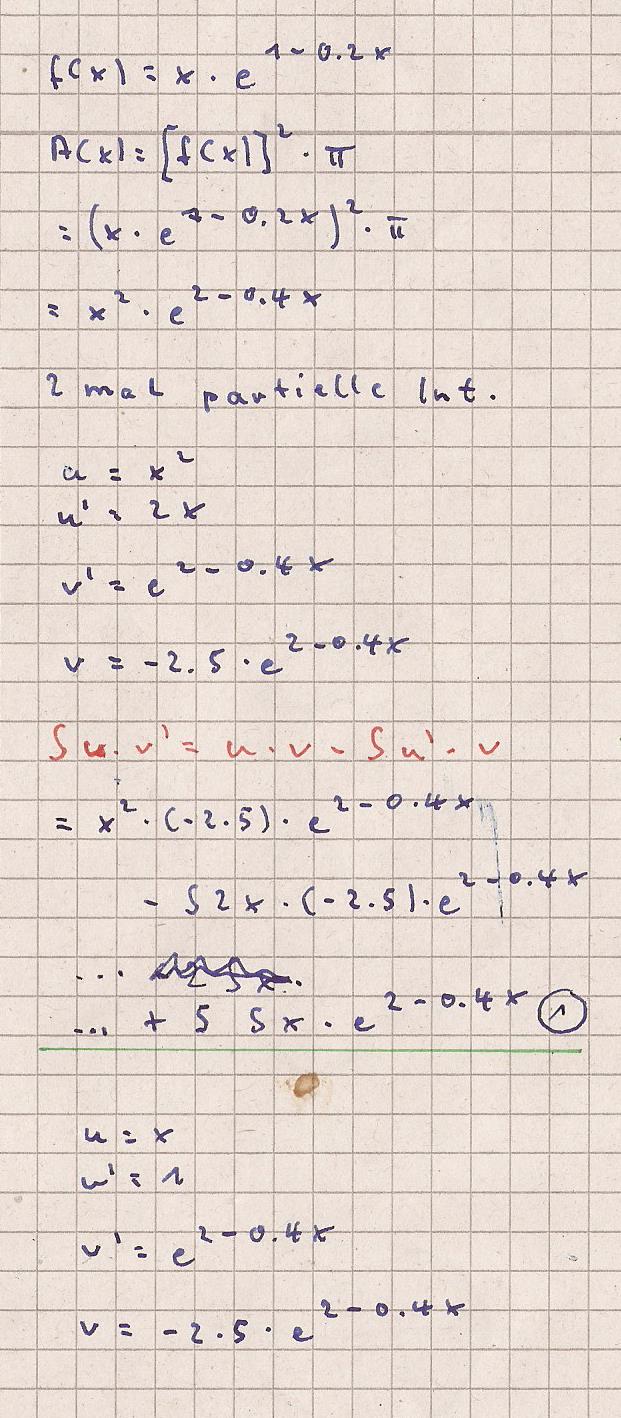 f(x) = x · e^1-0.2x
A(x) = [f(x)]² · π
= (x · e^1-0.2x)² · π
= x² · e^2-0.4x
2 mal partielle Int.
u = x²
u' = 2x
v' = e^2-0.4x
v = -2.5 · e^2-0.4x
∫ u · v' = u · v - ∫ u' · v
= x² · (-2.5) · e^2-0.4x
- ∫ 2x · (-2.5) · e^2-0.4x
...
... + ∫ 5x · e^2-0.4x ①
u = x
u' = 1
v' = e^2-0.4x
v = -2.5 · e^2-0.4x